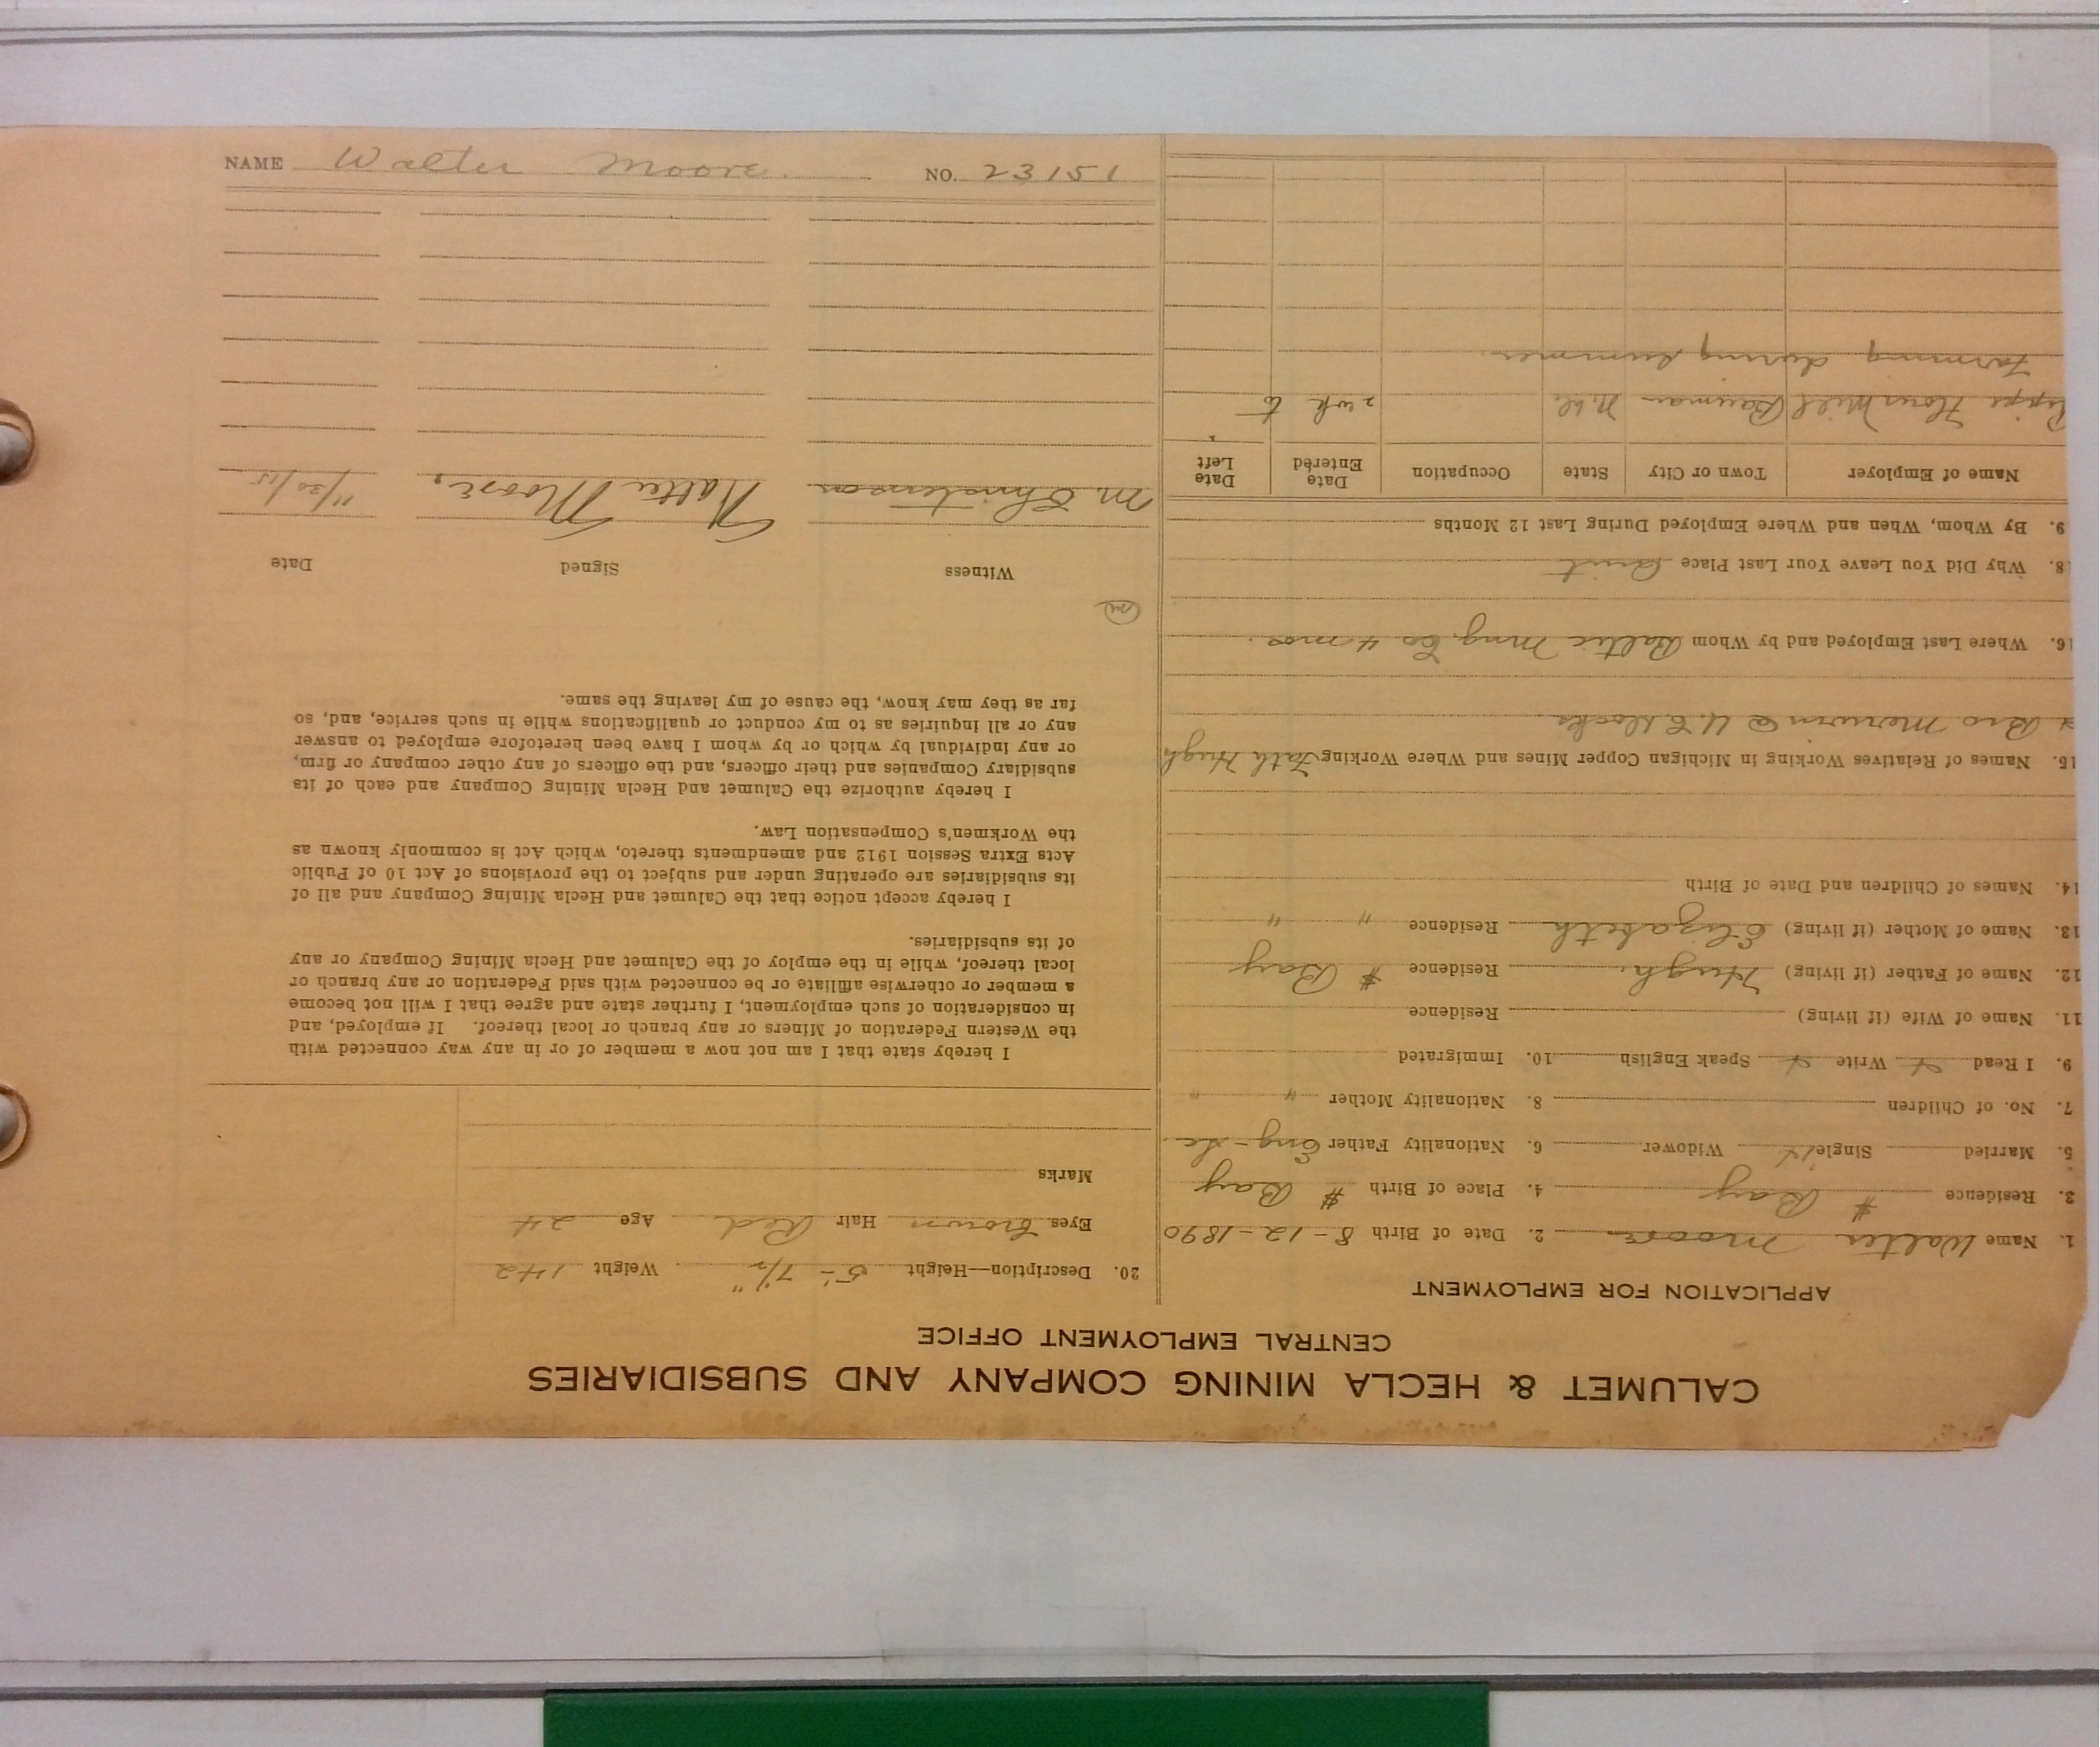 CALUMET & HECLA MINING COMPANY AND SUBSIDIARIES
CENTRAL EMPLOYMENT OFFICE
APPLICATION FOR EMPLOYMENT
1. Name Walter Moore 2. Date of Birth 8-12-1890
3. Residence # Bay 4. Place of Birth # Bay
5. Married Single Widower 6. Nationality Father Eng-
7. No. of Children 8. Nationality Mother " "
9. I Read Write Speak English 10. Immigrated
11. Name of Wife (if living) Residence
12. Name of Father (if living) Hugh. Residence # Bay
13. Name of Mother (if living) Elizabeth Residence " "
14. Names of Children and Date of Birth
15. Names of Relatives Working in Michigan Copper Mines and Where Working Fath Hugh
Bro @ docks
16. Where Last Employed and by Whom Baltic Mng. Co 4 mos.
18. Why Did You Leave Your Last Place Quit
19. By Whom, When and Where Employed During Last 12 Months
Name of Employer Town or City State Occupation Date Entered Date Left
Flour Mill 2 wk
Farming during summer
20. Description—Height 5'- 7½" Weight 142
Eyes Brown Hair Red Age 24
Marks
I hereby state that I am not now a member of or in any way connected with
the Western Federation of Miners or any branch or local thereof. If employed, and
in consideration of such employment, I further state and agree that I will not become
a member or otherwise affiliate or be connected with said Federation or any branch or
local thereof, while in the employ of the Calumet and Hecla Mining Company or any
of its subsidiaries.
I hereby accept notice that the Calumet and Hecla Mining Company and all of
its subsidiaries are operating under and subject to the provisions of Act 10 of Public
Acts Extra Session 1912 and amendments thereto, which Act is commonly known as
the Workmen's Compensation Law.
I hereby authorize the Calumet and Hecla Mining Company and each of its
subsidiary Companies and their officers, and the officers of any other company or firm,
or any individual by which or by whom I have been heretofore employed to answer
any or all inquiries as to my conduct or qualifications while in such service, and, so
far as they may know, the cause of my leaving the same.
Witness Signed Date
M. Christenson Walter Moore. 11/30/15
NAME Walter Moore. NO. 23151